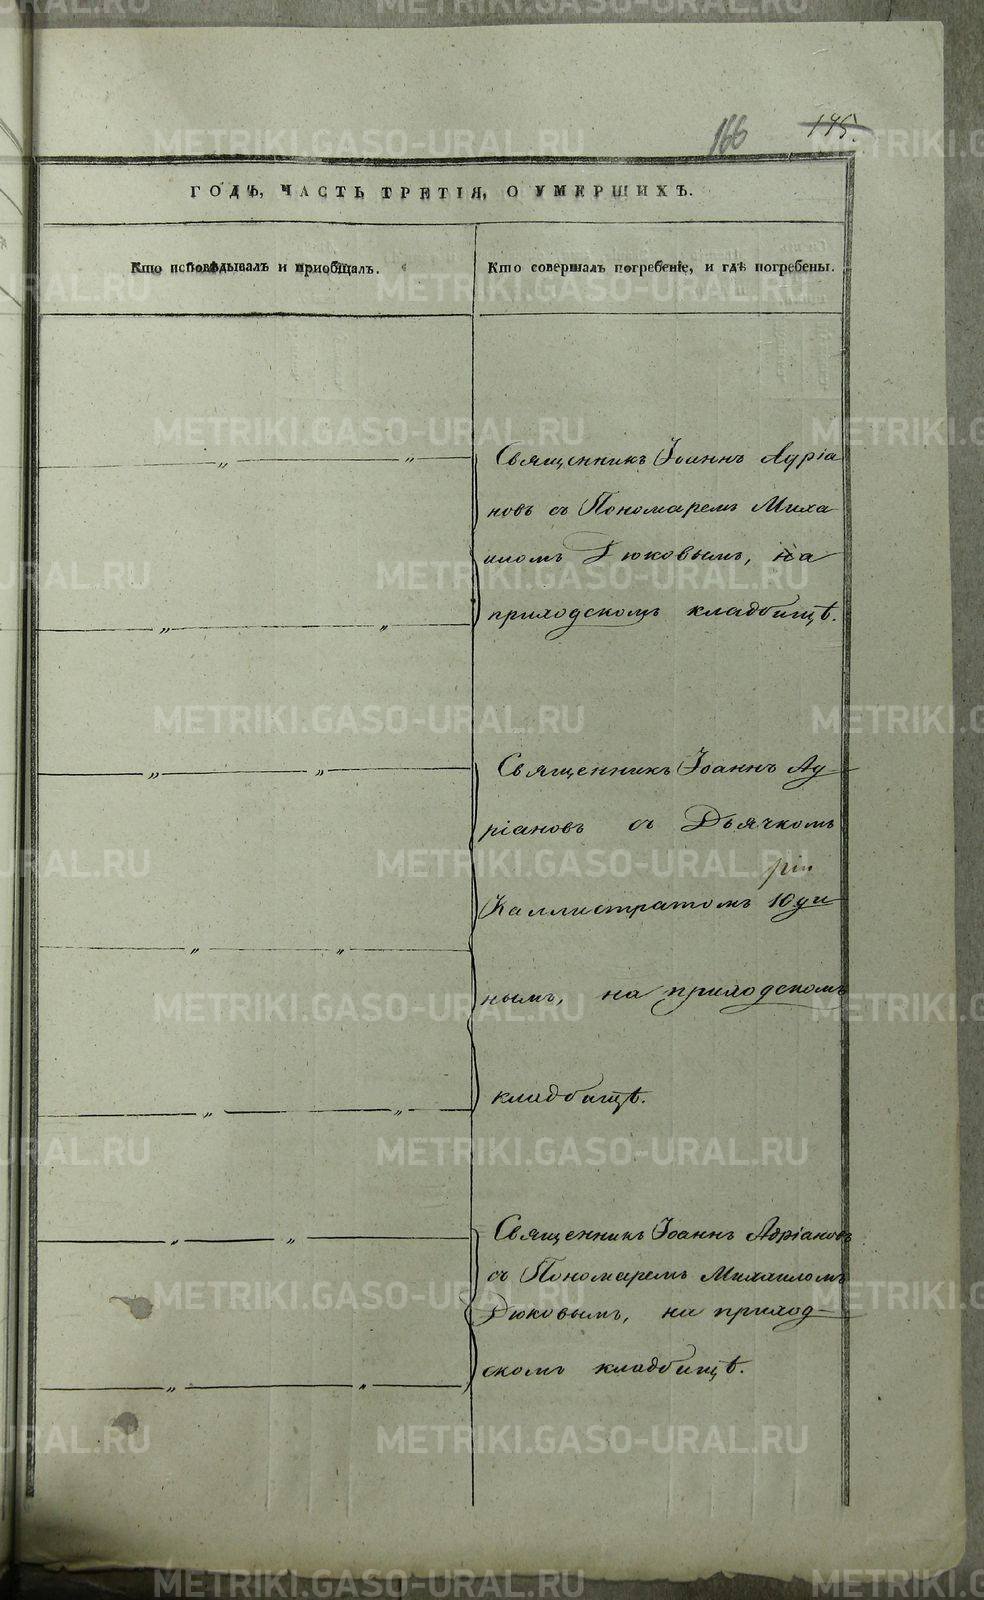 166 145.
ГОДѢ, ЧАСТЬ ТРЕТІЯ, О УМЕРШИХЪ.
Кто исповѣдывалъ и приобщалъ.
Кто совершалъ погребеніе, и гдѣ погребены.
Священникъ Іоаннъ Адріа
новъ съ Пономаремъ Миха
иломъ Дюковымъ, на
приходскомъ кладбищѣ.
Священникъ Іоаннъ Ад
ріановъ съ Дьячкомъ
ріи
Каллистратомъ Юди
нымъ, на приходскомъ
кладбищѣ.
Священникъ Іоаннъ Адріановъ
съ Пономаремъ Михаиломъ
Дюковымъ, на приход
скомъ кладбищѣ.
METRIKI.GASO-URAL.RU